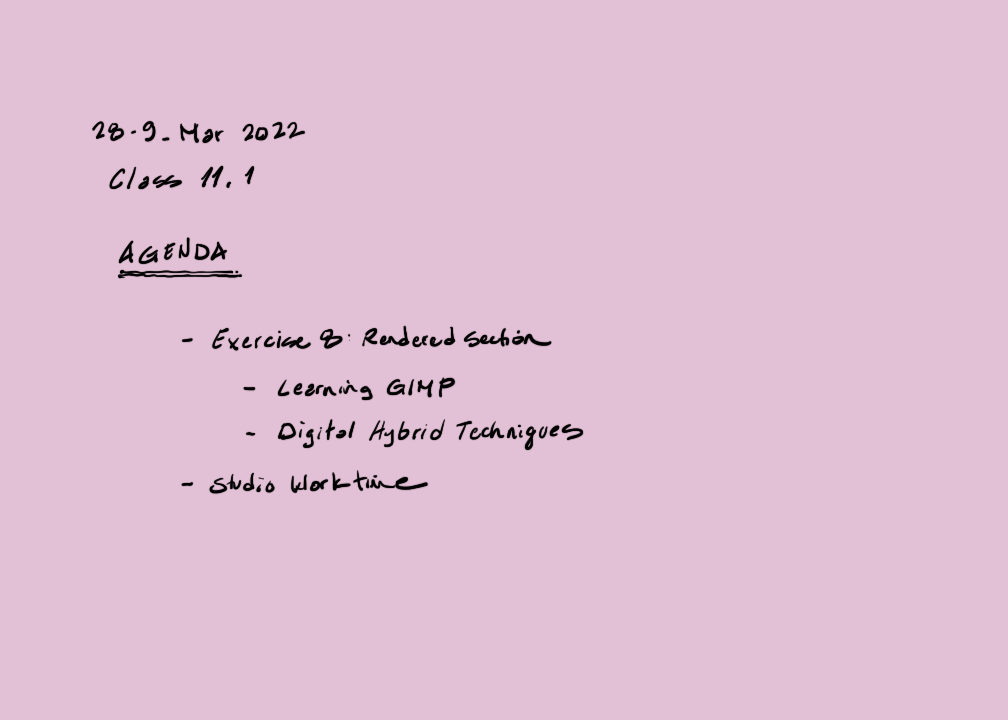 28-9_Mar 2022
Class 11.1
AGENDA
- Exercise 8: Rendered Section
- Learning GIMP
- Digital Hybrid Techniques
- Studio Worktime